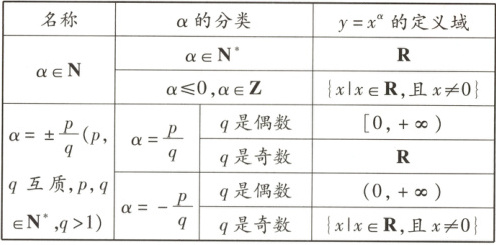 名称 α的分类 y=x^α的定义域
α∈N α∈N* R
α≤0,α∈Z {x|x∈R,且x≠0}
α=±p/q(p,q互质,p,q∈N*,q>1) α=p/q q是偶数 [0,+∞)
q是奇数 R
α=-p/q q是偶数 (0,+∞)
q是奇数 {x|x∈R,且x≠0}